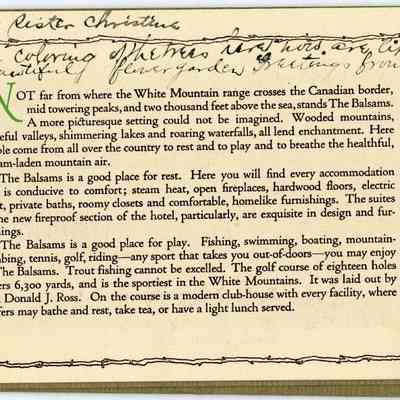 Sister Christine
coloring of the trees here now are
beautiful flower garden Greetings from
NOT far from where the White Mountain range crosses the Canadian border,
mid towering peaks, and two thousand feet above the sea, stands The Balsams.
A more picturesque setting could not be imagined. Wooded mountains,
eful valleys, shimmering lakes and roaring waterfalls, all lend enchantment. Here
ple come from all over the country to rest and to play and to breathe the healthful,
am-laden mountain air.
The Balsams is a good place for rest. Here you will find every accommodation
is conducive to comfort; steam heat, open fireplaces, hardwood floors, electric
t, private baths, roomy closets and comfortable, homelike furnishings. The suites
he new fireproof section of the hotel, particularly, are exquisite in design and fur-
ings.
The Balsams is a good place for play. Fishing, swimming, boating, mountain-
bing, tennis, golf, riding—any sport that takes you out-of-doors—you may enjoy
The Balsams. Trout fishing cannot be excelled. The golf course of eighteen holes
ers 6,300 yards, and is the sportiest in the White Mountains. It was laid out by
Donald J. Ross. On the course is a modern club-house with every facility, where
fers may bathe and rest, take tea, or have a light lunch served.